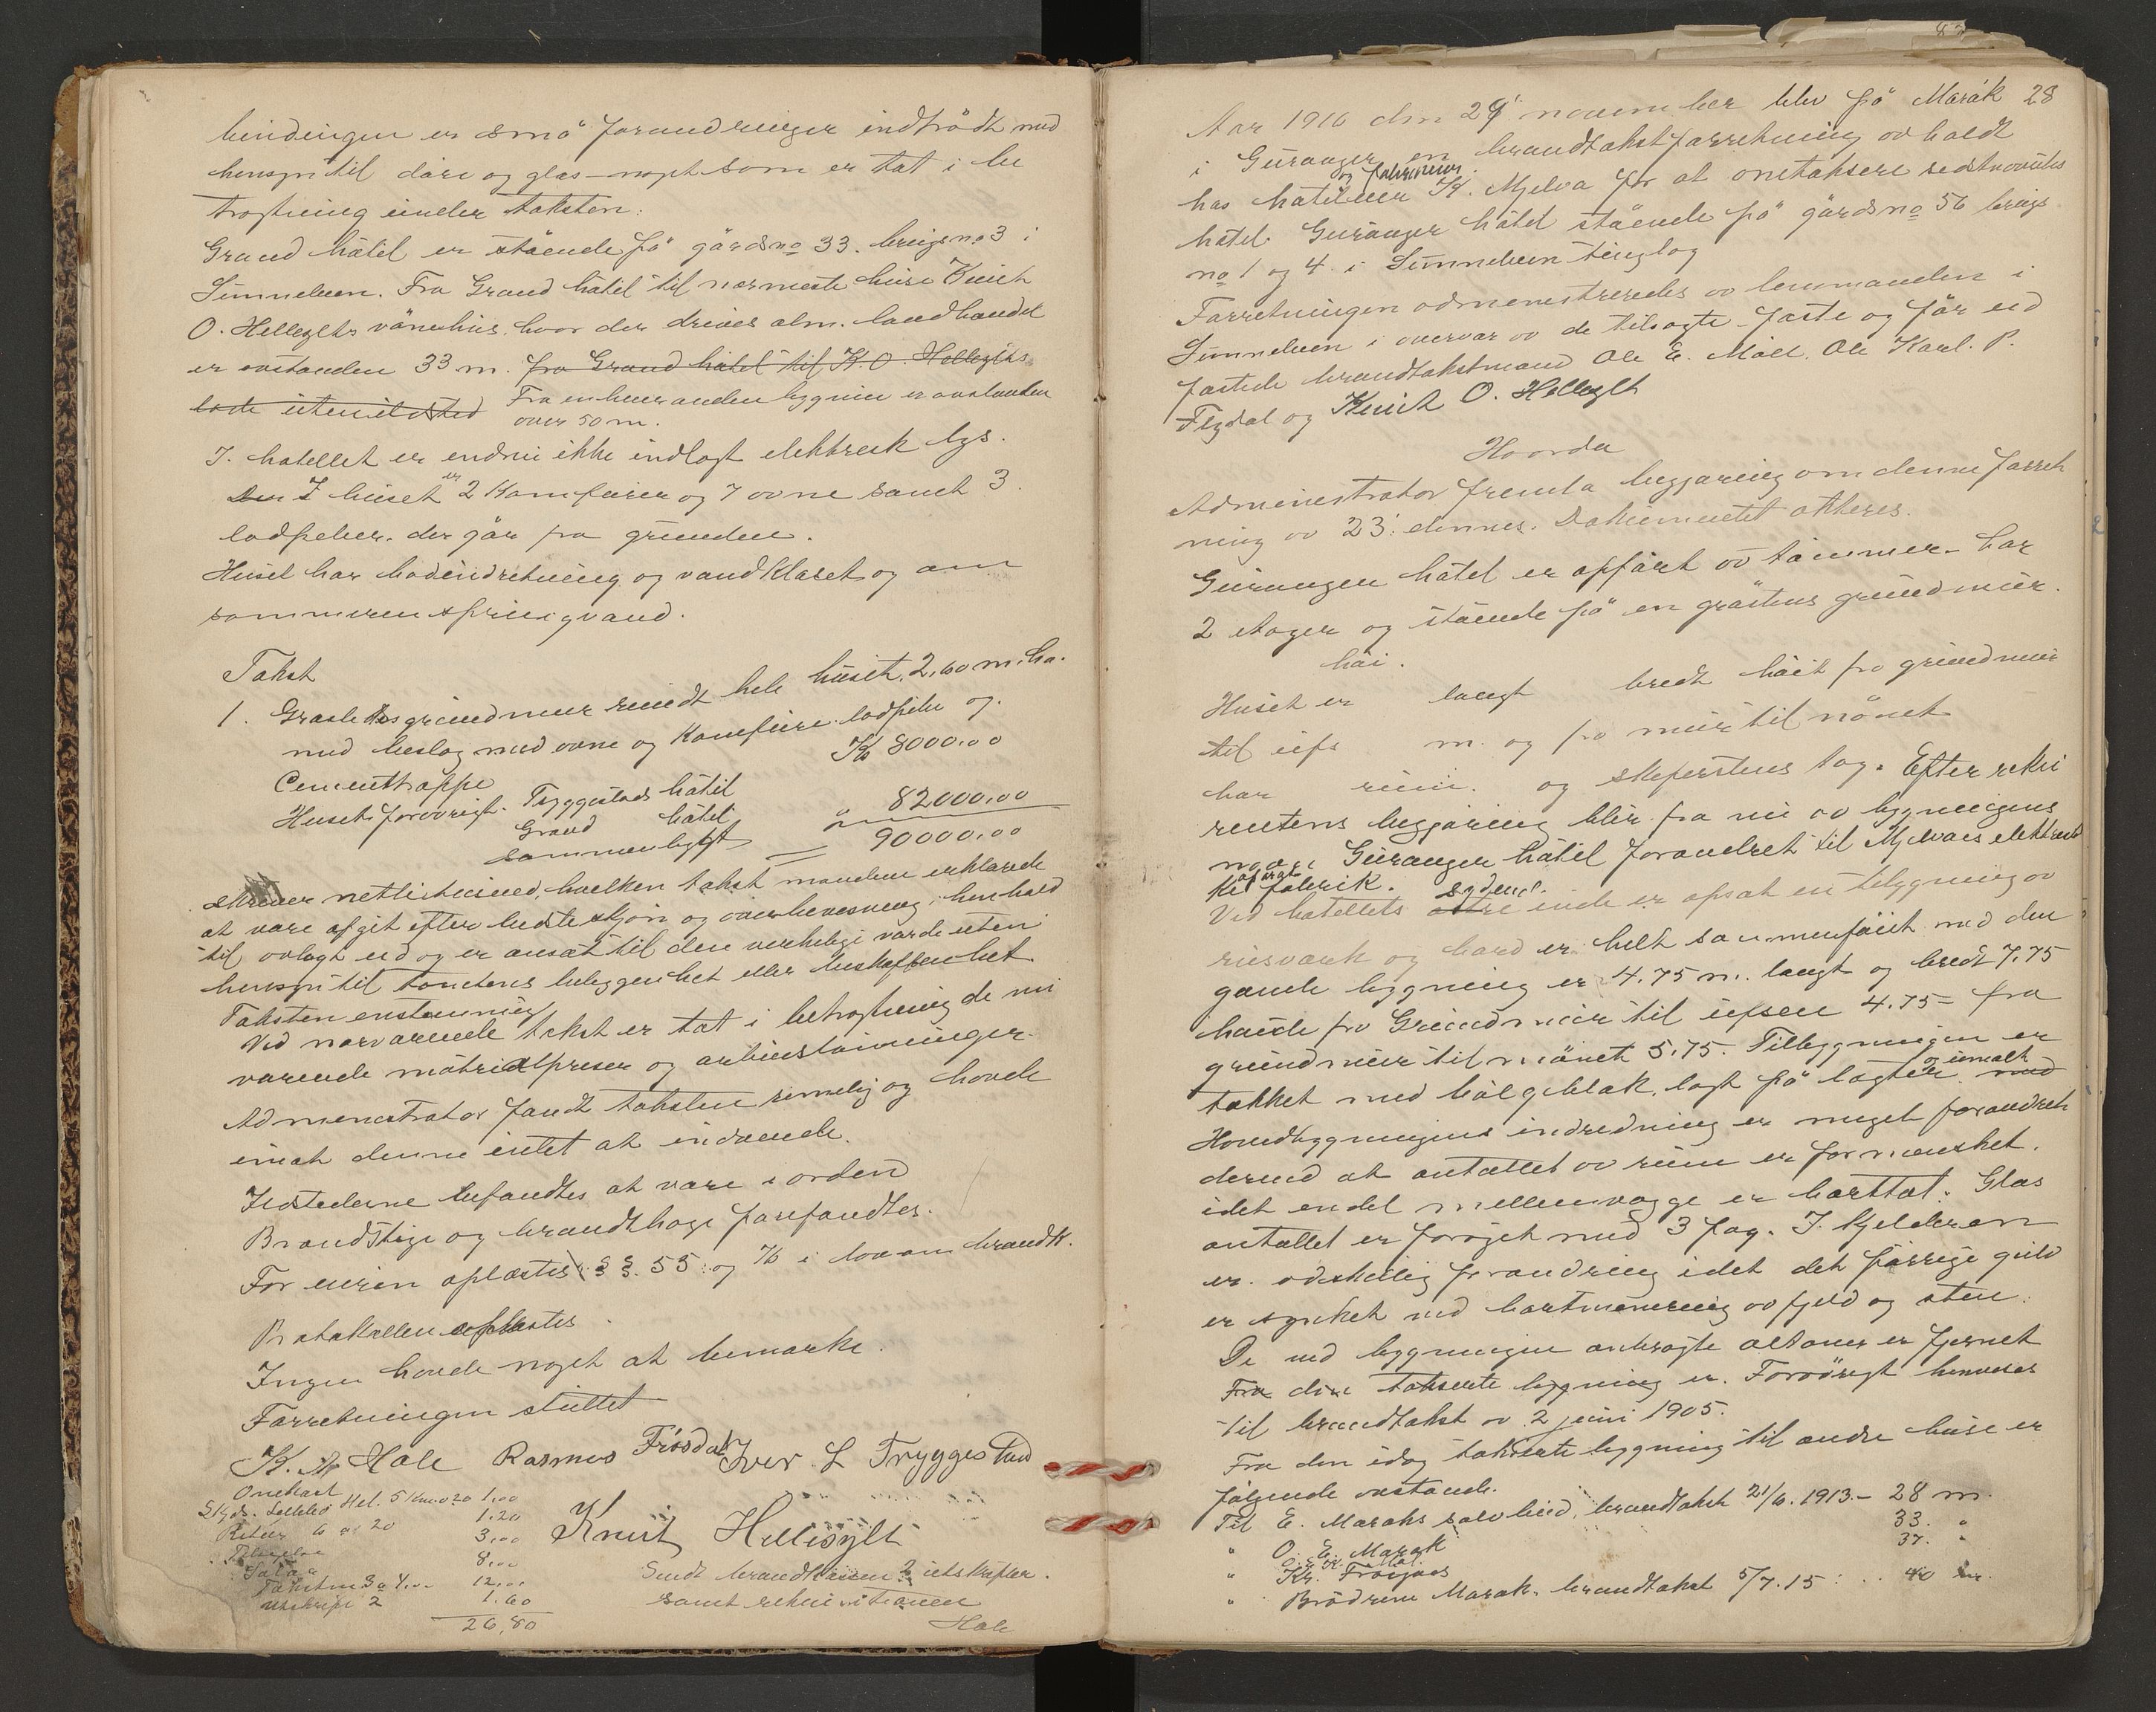 bindingen er små forandringer indtrådt med
hensyn til döre og glas – noget som er tat i be
tragtning under taksten.
Grand håtel er stående på gårdsno 33. brugsno 3 i
Sunnelven. Fra Grand håtel til nærmeste huse Knut
O. Hellesylts vånehus, hvor der drives alm. landhandel
er avstanden 33 m. fra Grand håtel til K. O. Hellesylts
lade uten ildsted Fra enhver anden bygnin er avstanden
over 50 m.
I. hotellet er endnu ikke indlagt elektrisk lys.
Der I huset er 2 Komfurer og 7 ovne samt 3
lodpeber. der går fra grunden.
Huset har badeindretning og vandklåset og om
sommeren springvand.
Takst
1. Gråstensgrundmur rundt hele huset. 2,60 m. hø.
med beslag med ovne og Komfure. lodpibe og
Cementtrappe K 8000,00
Huset forøvrigt. Tryggestads håtel
Grand håtel " 82000,00
sammenbygt 90000,00
skriver nettitusind, hvilken takst mændene erklærede
at være afgit efter bedste skjøn og overbevisning i henhold
til avlagt ed og er ansat til den verkelige værde uten
hensyn til tomtens beliggenhet eller beskaffenhet.
Taksten enstemmig
Ved nærværende takst er tat i betragtning de nu
værende måtrialpriser og arbeidslønninger.
Administrator fandt taksten rimelig og havde
imot denne intet at indvende.
Ildstederne befandtes at være i orden
Brandstige og brandhage forefandtes.
For eieren oplæstes §§. 55 og 76 i lov om brandk.
Protokollen oplæstes.
Ingen havde noget at bemærke.
Forretningen sluttet
K. A. Hole Rasmus Frøsdal Iver L Tryggestad
Knut Hellesylt
Skyds. Hel. 5 Km o 20 1,00
Retur 6 a 20 1.20
3,00
8,00
Takstm 3 a 4.00 12,00
utskrift 2 1.60
26,80
Sendt brandkassen 2 utskrifter.
samt rekvisitionen
Hole
28
Aar 1916 den 29' november blev på Maråk
i Geiranger en brandtakstforretning avholdt
og fabrikeier
hos håteleier K. Mjelva for at omtaksere sedstnævntes
håtel. Geiranger håtel stående på gårdsno 56 brugs
no 1 og 4. i Sunnelven tinglag
Forretningen administreredes av lensmanden i
Sunnelven i overvær av de tilsagte – faste og før eid
fæstede brandtakstmænd Ole E. Möll, Ole Karl. P.
Flydal og Knut O. Hellesylt
Hvorda
Administrator fremla begjæring om denne forret
ning av 23' dennes. Dokumentet akteres.
Geiranger håtel er opført av tømmer – har
2 etager og stående på en gråstens grundmur.
høi.
Huset er langt bredt høit fra grundmur
til ufs m. og fra mur til mønet
har rum. og skeferstens tag. Efter rekvi
rentens begjæring blir fra nu av bygningens
navn Geiranger håtel forandret til Mjelvas elektris
ke apparat fabrik.
Ved hotellets østre sydend. ende er opsat en tilbygning av
reisværk og bord er helt sammenføiet med den
gamle bygning er 4.75 m. langt og bredt 7,75
høide fra Grundmur til ufsen 4.75 – fra
grundmur til mønet 5.75. Tilbyggningen er
tækket med bølgeblek. lagt på lægter og umalt med
Hovedbygningens indredning er meget forandret
derved at antallet av rum er formensket.
idet endel mellemvægge er borttat. Glas
antallet er forøget med 3 fag. I Kjelderen
er. adskillig forandring idet det forrige gulv
er synket ved bortminering av fjeld og sten.
De ved bygningen anbragte altaner er fjernet
Fra den takserte bygning er. Forøvrigt henvises
til brandtakst av 2 juni 1905.
Fra den idag takserte bygning til andre huse er
følgende avstande.
Til E. Maraks salvbud, brandtakst 21/6. 1913. – 28 m.
" O. E. Maråk 33. "
" Kr. 37. "
" Brødrene Marak. brandtakst 5/7. 15 : . . 40 m.